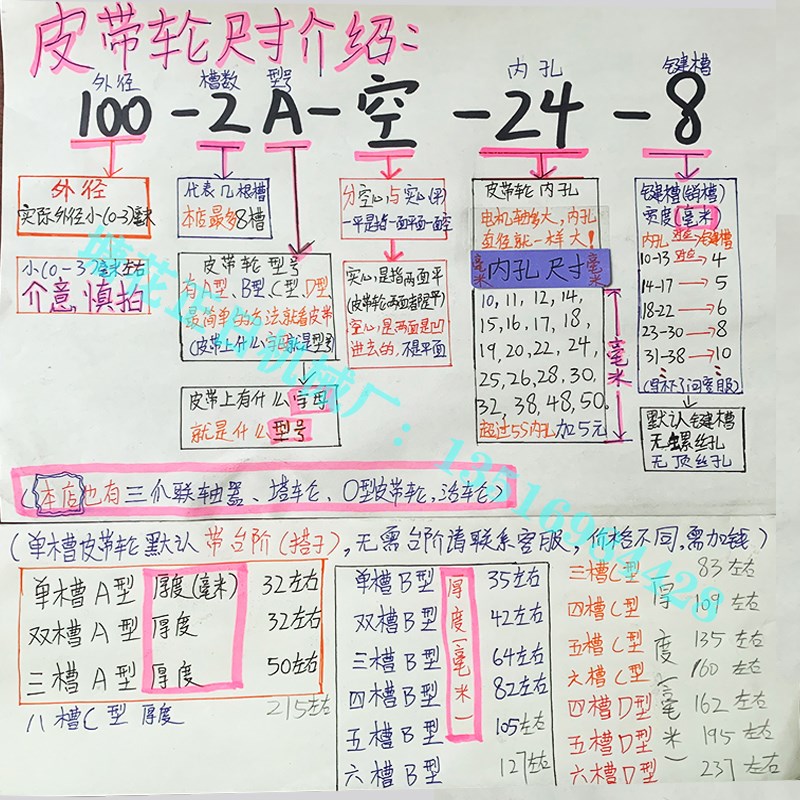 皮带轮尺寸介绍:
外径 槽数 型号 内孔 键槽
100-2A-空-24-8
外径
实际外径小(0-3)毫米
小(0-3)毫米左右
介意慎拍
代表几根槽
本店最多8槽
皮带轮型号
有A型、B型、C型、D型
最简单的方法就看皮带
(皮带上什么字母就是型号)
皮带上有什么字母
就是什么型号
分空心与实心(平)
一平是指一面平面一面空
实心,是指两面平
(皮带轮两面都是平)
空心,是两面是凹
进去的,不是平面
皮带轮内孔
电机轴多大,内孔
直径就一样大!
毫米 内孔尺寸 毫米
10,11,12,14,
15,16,17,18,
19,20,22,24,
25,26,28,30,
32,38,48,50
超过55内孔加5元
毫米
键槽(销槽)
宽度(毫米)
内孔 对应→键槽
10-13 对应→4
14-17→5
18-22→6
23-30→8
31-38→10
默认键槽
无螺丝孔
无顶丝孔
(本店也有三爪联轴器、塔轮、O型皮带轮,活轮)
(单槽皮带轮默认带台阶(搭子),无需台阶请联系客服,价格不同,需加钱)
单槽A型 厚度(毫米) 32左右
双槽A型 厚度 32左右
三槽A型 厚度 50左右
八槽C型 厚度 215左右
厚度(毫米)
单槽B型 35左右
双槽B型 42左右
三槽B型 64左右
四槽B型 82左右
五槽B型 105左右
六槽B型 127左右
厚度(毫米)
三槽C型 83左右
四槽C型 109左右
五槽C型 135左右
六槽C型 160左右
四槽D型 162左右
五槽D型 195左右
六槽D型 237左右